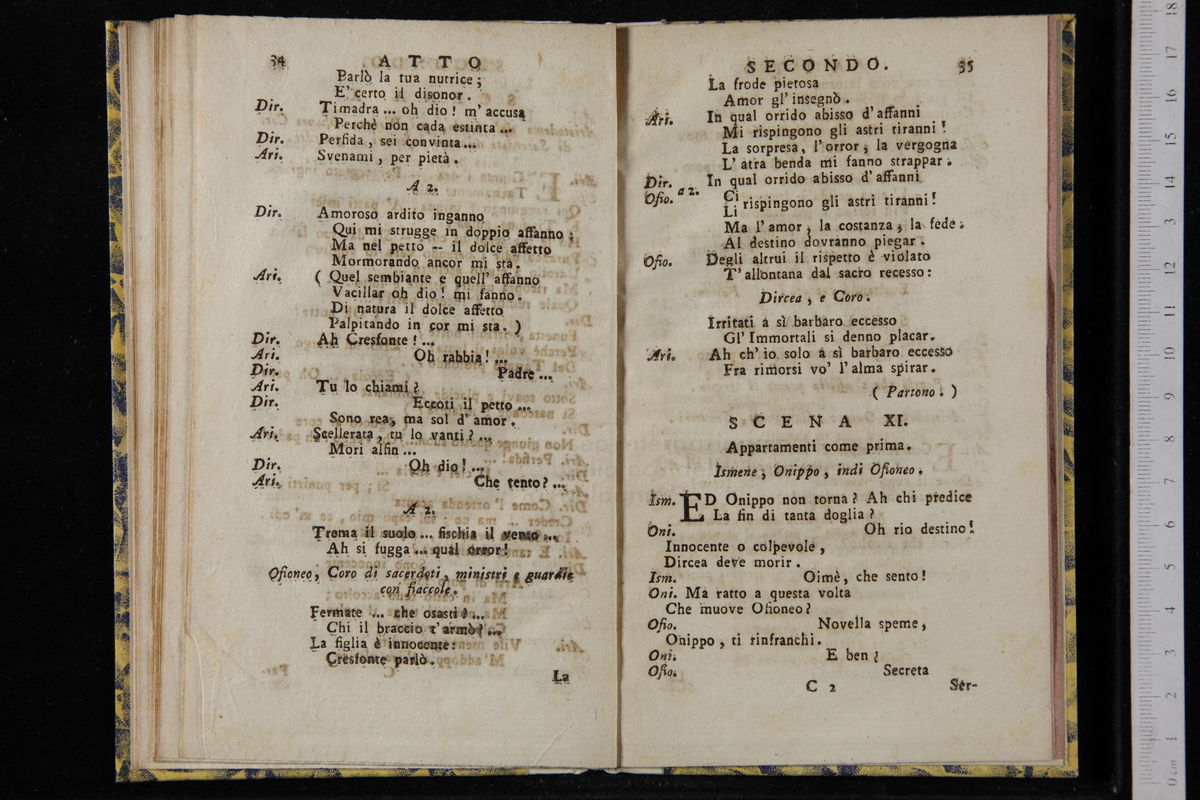 34 ATTO
Parlò la tua nutrice;
E' certo il disonor.
Dir. Timadra ... oh dio! m' accusa
Perchè non cada estinta ...
Dir. Perfida, sei convinta...
Ari. Svenami, per pietà.
A 2.
Dir. Amoroso ardito inganno
Qui mi strugge in doppio affanno;
Ma nel petto -- il dolce affetto
Mormorando ancor mi sta.
Ari. ( Quel sembiante e quell' affanno
Vacillar oh dio! mi fanno.
Di natura il dolce affetto
Palpitando in cor mi sta. )
Dir. Ah Cresfonte! ...
Ari. Oh rabbia! ...
Dir. Padre ...
Ari. Tu lo chiami?
Dir. Eccoti il petto ...
Sono rea, ma sol d' amor.
Ari. Scellerata, tu lo vanti? ...
Mori alfin ...
Dir. Oh dio! ...
Ari. Che tento? ...
A 2.
Trema il suolo ... fischia il vento ...
Ah si fugga ... qual orror!
Ofioneo, Coro di sacerdoti, ministri e guardie
con fiaccole.
Fermate ... che osasti? ...
Chi il braccio t' armò? ...
La figlia è innocente:
Cresfonte parlò.
La
SECONDO. 35
La frode pietosa
Amor gl' insegnò.
Ari. In qual orrido abisso d' affanni
Mi rispingono gli astri tiranni!
La sorpresa, l' orror, la vergogna
L' atra benda mi fanno strappar.
Dir. In qual orrido abisso d' affanni
Ofio. a 2. Ci
Li rispingono gli astri tiranni!
Ma l' amor, la costanza, la fede
Al destino dovranno piegar.
Ofio. Degli altrui il rispetto è violato
T' allontana dal sacro recesso:
Dircea, e Coro.
Irritati a sì barbaro eccesso
Gl' Immortali si denno placar.
Ari. Ah ch' io solo a sì barbaro eccesso
Fra rimorsi vo' l' alma spirar.
( Partono. )
SCENA XI.
Appartamenti come prima.
Ismene, Onippo, indi Ofioneo.
Ism. ED Onippo non torna? Ah chi predice
La fin di tanta doglia?
Oni. Oh rio destino!
Innocente o colpevole,
Dircea deve morir.
Ism. Oimè, che sento!
Oni. Ma ratto a questa volta
Che muove Ofioneo?
Ofio. Novella speme,
Onippo, ti rinfranchi.
Oni. E ben?
Ofio. Secreta
C 2 Ser-